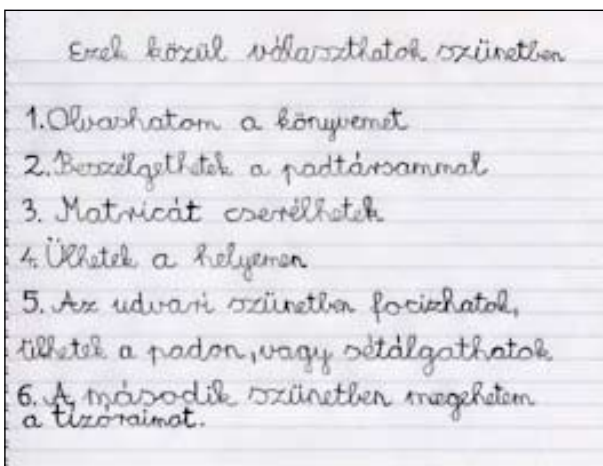 Ezek közül választhatok szünetben
1. Olvashatom a könyvemet
2. Beszélgethetek a padtársammal
3. Matricát cserélhetek
4. Ülhetek a helyemen
5. Az udvari szünetben focizhatok,
ülhetek a padon, vagy sétálgathatok
6. A második szünetben megehetem
a tízóraimat.